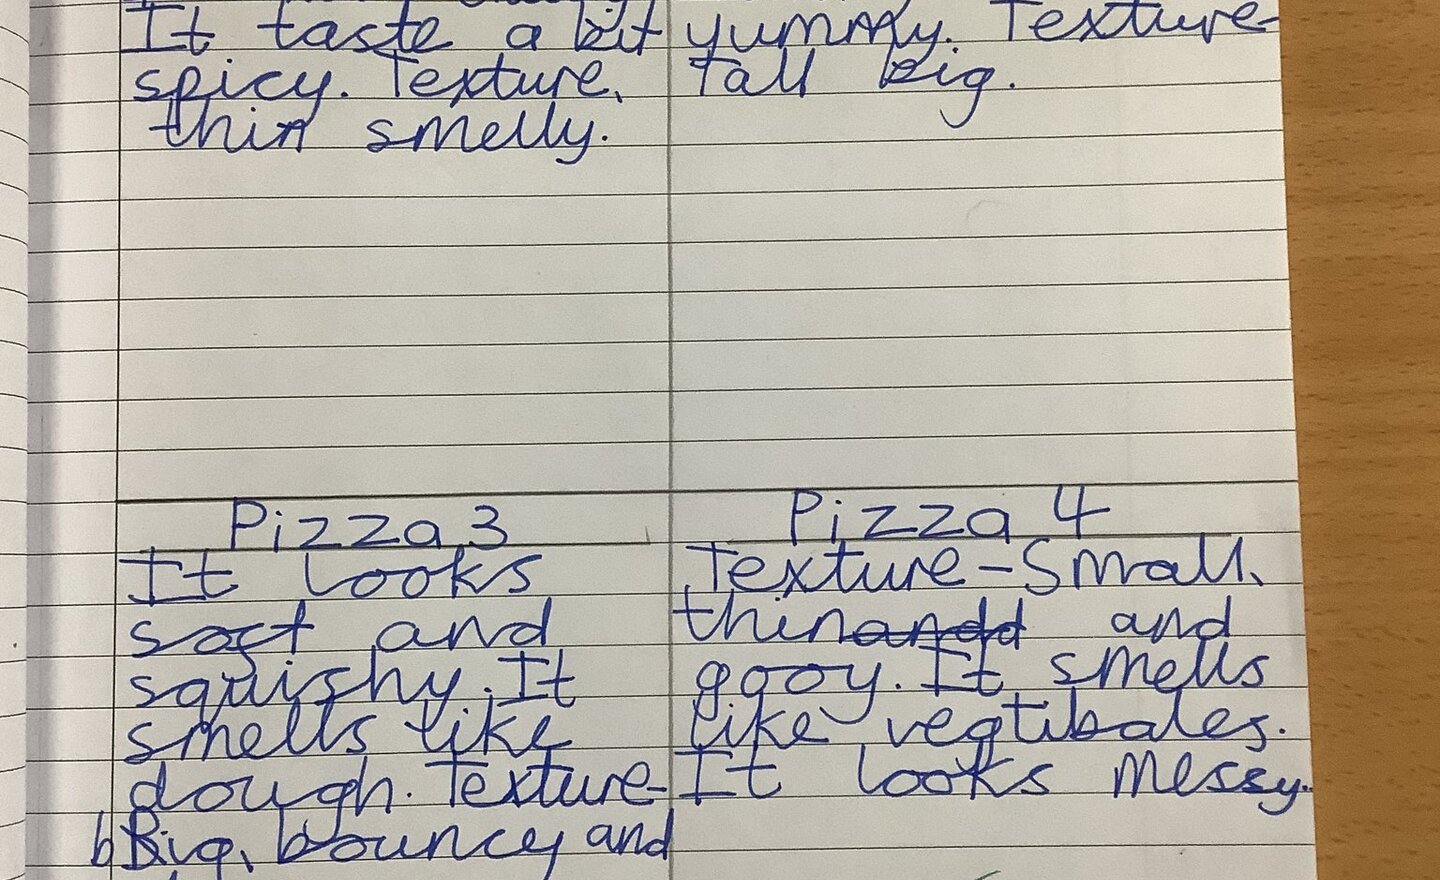 It taste a bit
spicy. Texture,
thin smelly.
yummy. Texture-
Tall big.
Pizza 3
It looks
soft and
squishy. It
smells like
dough. Texture-
b Big, bouncy and
Pizza 4
Texture-Small,
thin andd and
gooy. It smells
like vegtibales.
It looks messy.